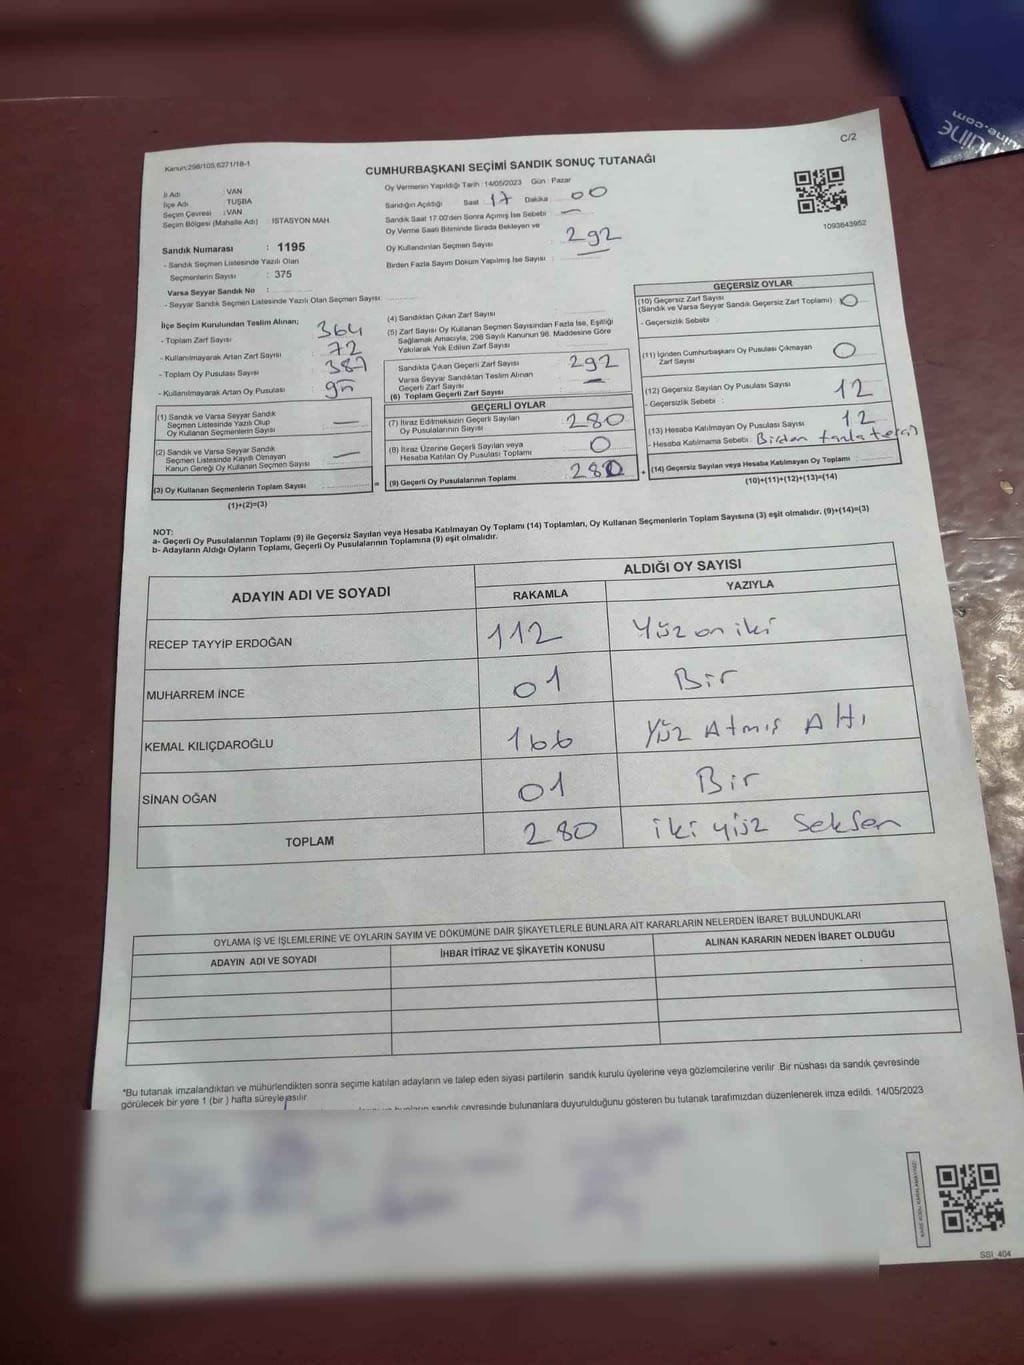 Kanun:298/105,6271/18-1
C/2
CUMHURBAŞKANI SEÇİMİ SANDIK SONUÇ TUTANAĞI
İl Adı : VAN
İlçe Adı : TUŞBA
Seçim Çevresi : VAN
Seçim Bölgesi (Mahalle Adı) İSTASYON MAH.
Sandık Numarası : 1195
- Sandık Seçmen Listesinde Yazılı Olan
Seçmenlerin Sayısı : 375
Varsa Seyyar Sandık No :
- Seyyar Sandık Seçmen Listesinde Yazılı Olan Seçmen Sayısı:
Oy Vermenin Yapıldığı Tarih :14/05/2023 Gün : Pazar
Sandığın Açıldığı Saat 17 Dakika 00
Sandık Saat 17:00'den Sonra Açımış İse Sebebi : —
Oy Verme Saati Bitiminde Sırada Bekleyen ve
Oy Kullandırılan Seçmen Sayısı : 292
Birden Fazla Sayım Döküm Yapılmış İse Sayısı :
1093843952
İlçe Seçim Kurulundan Teslim Alınan;
- Toplam Zarf Sayısı : 364
- Kullanılmayarak Artan Zarf Sayısı : 72
- Toplam Oy Pusulası Sayısı : 387
- Kullanılmayarak Artan Oy Pusulası :
(1) Sandık ve Varsa Seyyar Sandık
Seçmen Listesinde Yazılı Olup
Oy Kullanan Seçmenlerin Sayısı —
(2) Sandık ve Varsa Seyyar Sandık
Seçmen Listesinde Kaydı Olmayan
Kanun Gereği Oy Kullanan Seçmen Sayısı —
(3) Oy Kullanan Seçmenlerin Toplam Sayısı
(1)+(2)=(3)
(4) Sandıktan Çıkan Zarf Sayısı :
(5) Zarf Sayısı Oy Kullanan Seçmen Sayısından Fazla İse, Eşitliği
Sağlamak Amacıyla, 298 Sayılı Kanunun 98. Maddesine Göre
Yakılarak Yok Edilen Zarf Sayısı
Sandıkta Çıkan Geçerli Zarf Sayısı 292
Varsa Seyyar Sandıktan Teslim Alınan
Geçerli Zarf Sayısı : —
(6) Toplam Geçerli Zarf Sayısı
GEÇERLİ OYLAR
(7) İtiraz Edilmeksizin Geçerli Sayılan
Oy Pusulalarının Sayısı : 280
(8) İtiraz Üzerine Geçerli Sayılan veya
Hesaba Katılan Oy Pusulası Toplamı : 0
(9) Geçerli Oy Pusulalarının Toplamı : 280
GEÇERSİZ OYLAR
(10) Geçersiz Zarf Sayısı
(Sandık ve Varsa Seyyar Sandık Geçersiz Zarf Toplamı) : 0
- Geçersizlik Sebebi :
(11) İçinden Cumhurbaşkanı Oy Pusulası Çıkmayan
Zarf Sayısı : 0
(12) Geçersiz Sayılan Oy Pusulası Sayısı : 12
- Geçersizlik Sebebi :
(13) Hesaba Katılmayan Oy Pusulası Sayısı : 12
- Hesaba Katılmama Sebebi : Birden fazla tercih
+ (14) Geçersiz Sayılan veya Hesaba Katılmayan Oy Toplamı :
(10)+(11)+(12)+(13)=(14)
NOT:
a- Geçerli Oy Pusulalarının Toplamı (9) ile Geçersiz Sayılan veya Hesaba Katılmayan Oy Toplamı (14) Toplamları, Oy Kullanan Seçmenlerin Toplam Sayısına (3) eşit olmalıdır. (9)+(14)=(3)
b- Adayların Aldığı Oyların Toplamı, Geçerli Oy Pusulalarının Toplamına (9) eşit olmalıdır.
ADAYIN ADI VE SOYADI ALDIĞI OY SAYISI
RAKAMLA YAZIYLA
RECEP TAYYİP ERDOĞAN 112 Yüz on iki
MUHARREM İNCE 01 Bir
KEMAL KILIÇDAROĞLU 166 Yüz Atmış Altı
SİNAN OĞAN 01 Bir
TOPLAM 280 iki yüz Seksen
OYLAMA İŞ VE İŞLEMLERİNE VE OYLARIN SAYIM VE DÖKÜMÜNE DAİR ŞİKAYETLERLE BUNLARA AİT KARARLARIN NELERDEN İBARET BULUNDUKLARI
ADAYIN ADI VE SOYADI İHBAR İTİRAZ VE ŞİKAYETİN KONUSU ALINAN KARARIN NEDEN İBARET OLDUĞU
*Bu tutanak imzalandıktan ve mühürlendikten sonra seçime katılan adayların ve talep eden siyasi partilerin sandık kurulu üyelerine veya gözlemcilerine verilir. Bir nüshası da sandık çevresinde
görülecek bir yere 1 (bir ) hafta süreyle asılır.
sandık çevresinde bulunanlara duyurulduğunu gösteren bu tutanak tarafımızdan düzenlenerek imza edildi. 14/05/2023
KARE KODU KARALAMAYINIZ!
SSI_404